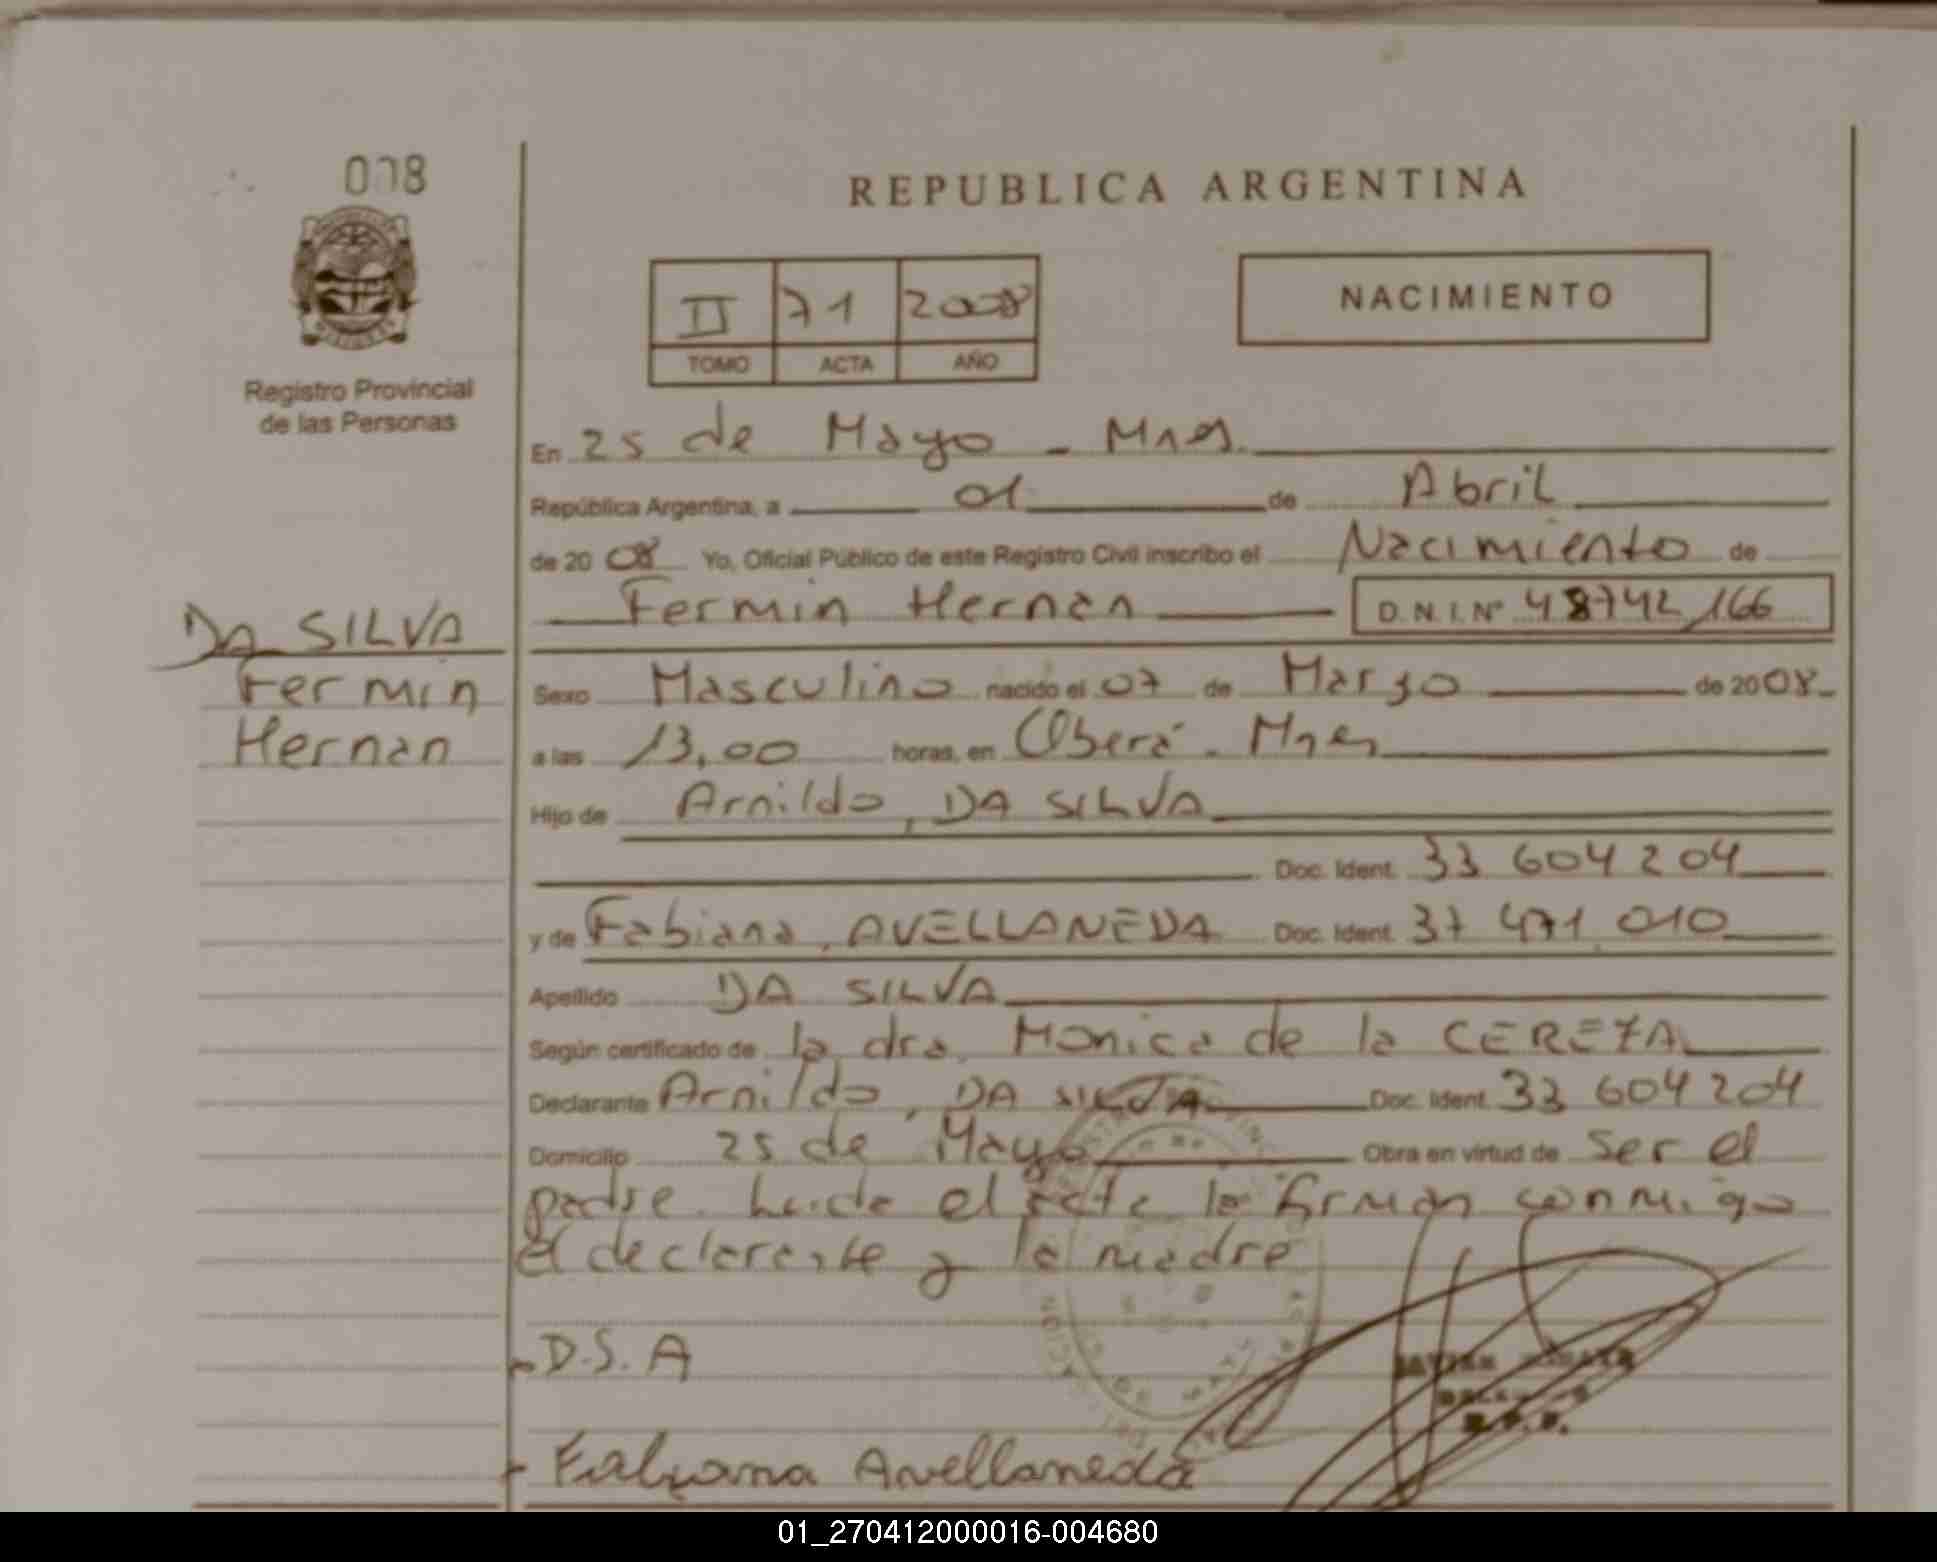 008
REPUBLICA ARGENTINA
NACIMIENTO
II 71 2008
TOMO ACTA AÑO
Registro Provincial
de las Personas
En 25 de Mayo - Mnes.
República Argentina, a 01 de Abril
de 20 08 Yo, Oficial Público de este Registro Civil inscribo el Nacimiento de
Fermin Hernan D.N.I.Nº 48742166
DA SILVA
Fermin
Hernan
Sexo Masculino nacido el 07 de Marzo de 2008
a las 13,00 horas, en Oberá - Mnes
Hijo de Arnildo, DA SILVA
Doc. Ident. 33 604 204
y de Fabiana, AVELLANEDA Doc. Ident. 37 471 010
Apellido DA SILVA
Según certificado de la dra. Monica de la CEREZA
Declarante Arnildo, DA SILVA Doc. Ident. 33 604 204
Domicilio 25 de Mayo Obra en virtud de ser el
padre. Leida el acta la firman conmigo
el declarante y la madre
D.S.A
Fabiana Avellaneda
01_270412000016-004680